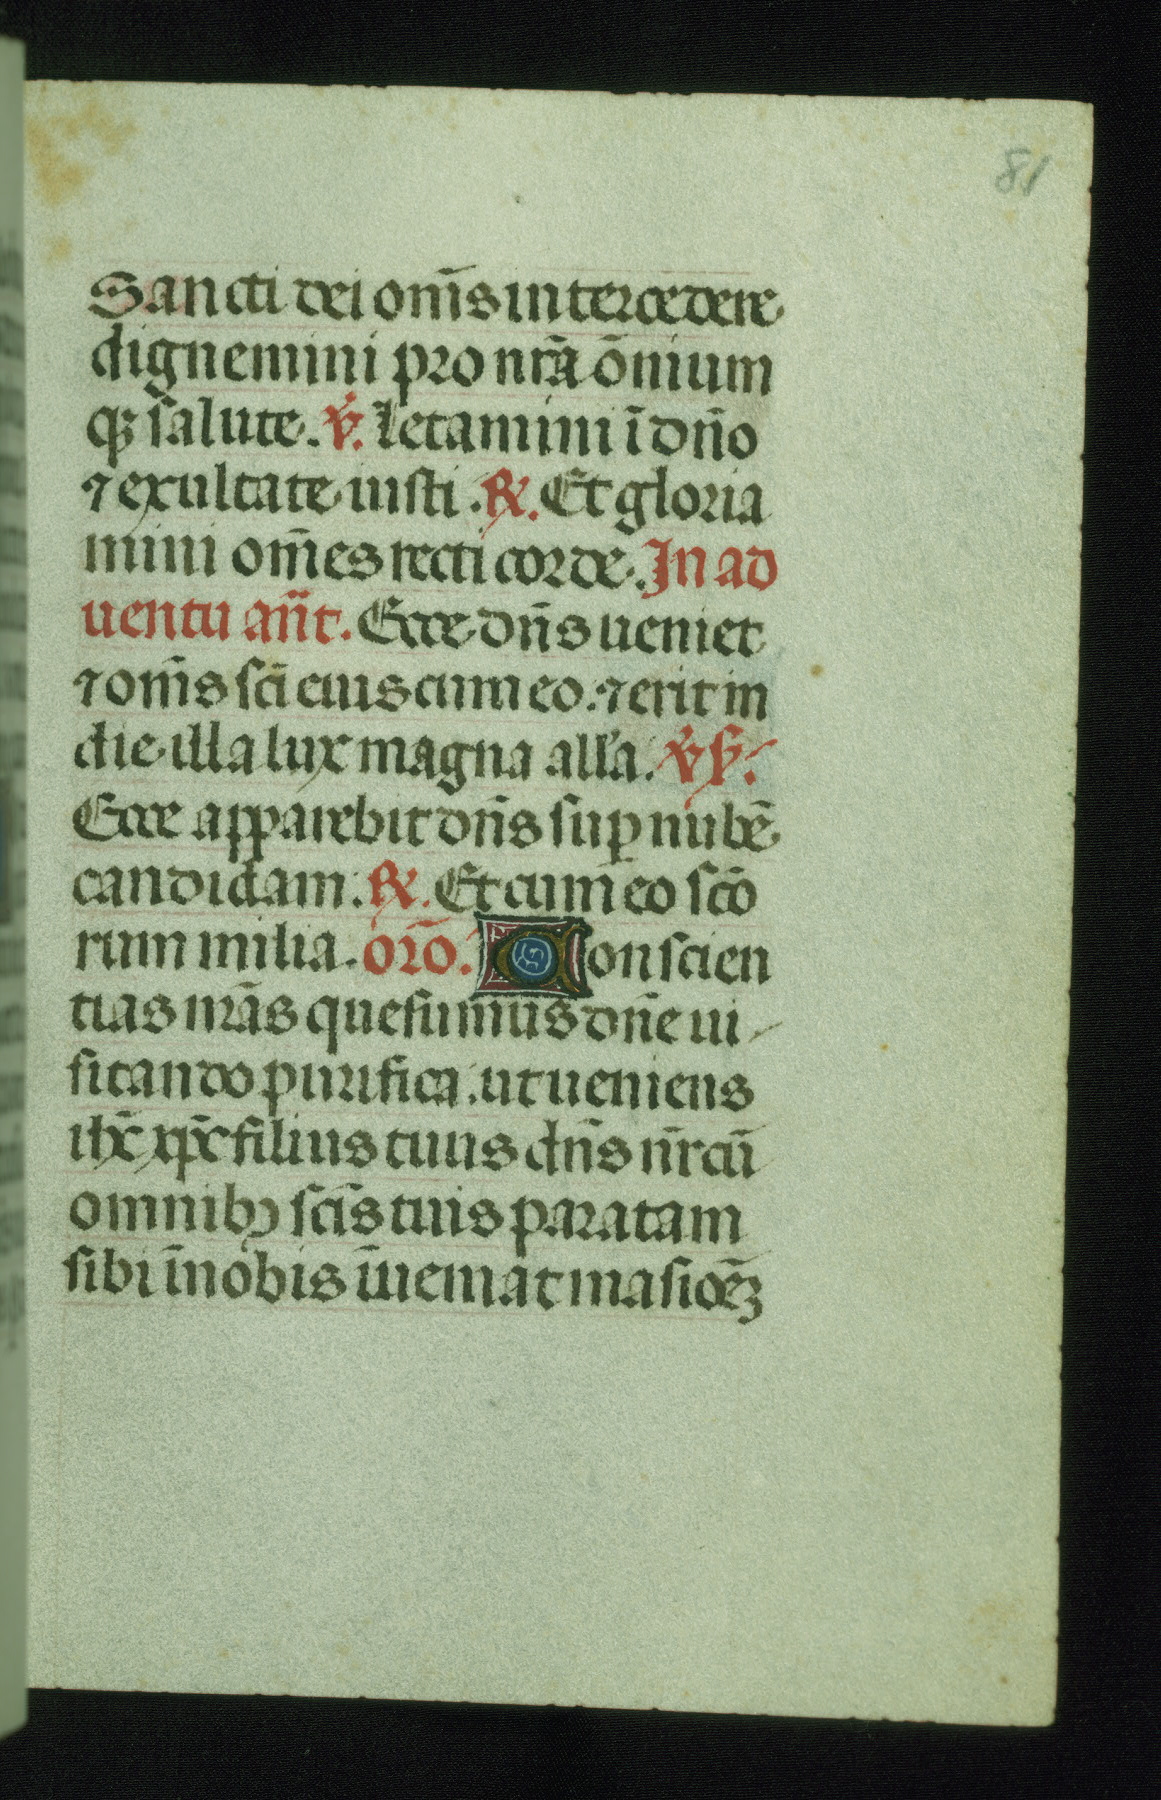 81
Sancti dei om̄s intercedere
dignemini pro nr̄a ōnium
qȝ salute. v̄. Letamini ī dn̄o
⁊ exultate iusti. ℟. Et gloria
mini om̄es recti corde. In ad
uentu an̄t. Ecce dn̄s ueniet
⁊ om̄s sc̄i eius cum eo. ⁊ erit in
die illa lux magna all'a. v̄s.
Ecce apparebit dn̄s suꝑ nubē
candidam. ℟. Et cum eo sctō
rum milia. orō. Conscien
tias nr̄as quesumus dn̄e ui
sitando purifica. ut ueniens
ih̄c xp̄c filius tuus dn̄s nr̄ cū
omnibꝫ sc̄is tuis paratam
sibi ī nobis īueniat masiōeȝ